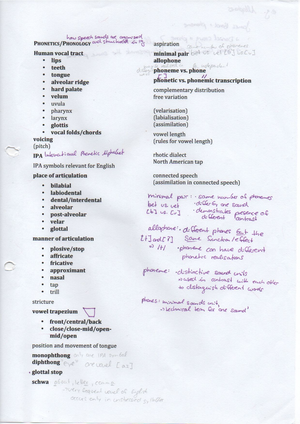 how speech sounds are organised
and structured in lg
PHONETICS/PHONOLOGY
Human vocal tract
• lips
• teeth
• tongue
• alveolar ridge
• hard palate
• velum
• uvula
• pharynx
• larynx
• glottis
• vocal folds/chords
voicing
(pitch)
IPA International Phonetic Alphabet
IPA symbols relevant for English
place of articulation
• bilabial
• labiodental
• dental/interdental
• alveolar
• post-alveolar
• velar
• glottal
manner of articulation
• plosive/stop
• affricate
• fricative
• approximant
• nasal
• tap
• trill
stricture
vowel trapezium
• front/central/back
• close/close-mid/open-
mid/open
position and movement of tongue
monophthong
diphthong
glottal stop
schwa
aspiration
minimal pair
allophone
phoneme vs. phone
phonetic vs. phonemic transcription
complementary distribution
free variation
(velarisation)
(labialisation)
(assimilation)
vowel length
(rules for vowel length)
rhotic dialect
North American tap
connected speech
(assimilation in connected speech)
minimal pair: - same number of phonemes
bet vs. vet - differ by one sound
[b] vs. [v] - demonstrates presence of
different contrast
allophone: different phones but the
same function/effect
/t/ phoneme can have different
phonetic realisations
phoneme: - distinctive sound units
used in contrast with each other
to distinguish different words
phones: minimal sounds units
"technical term for one sound"